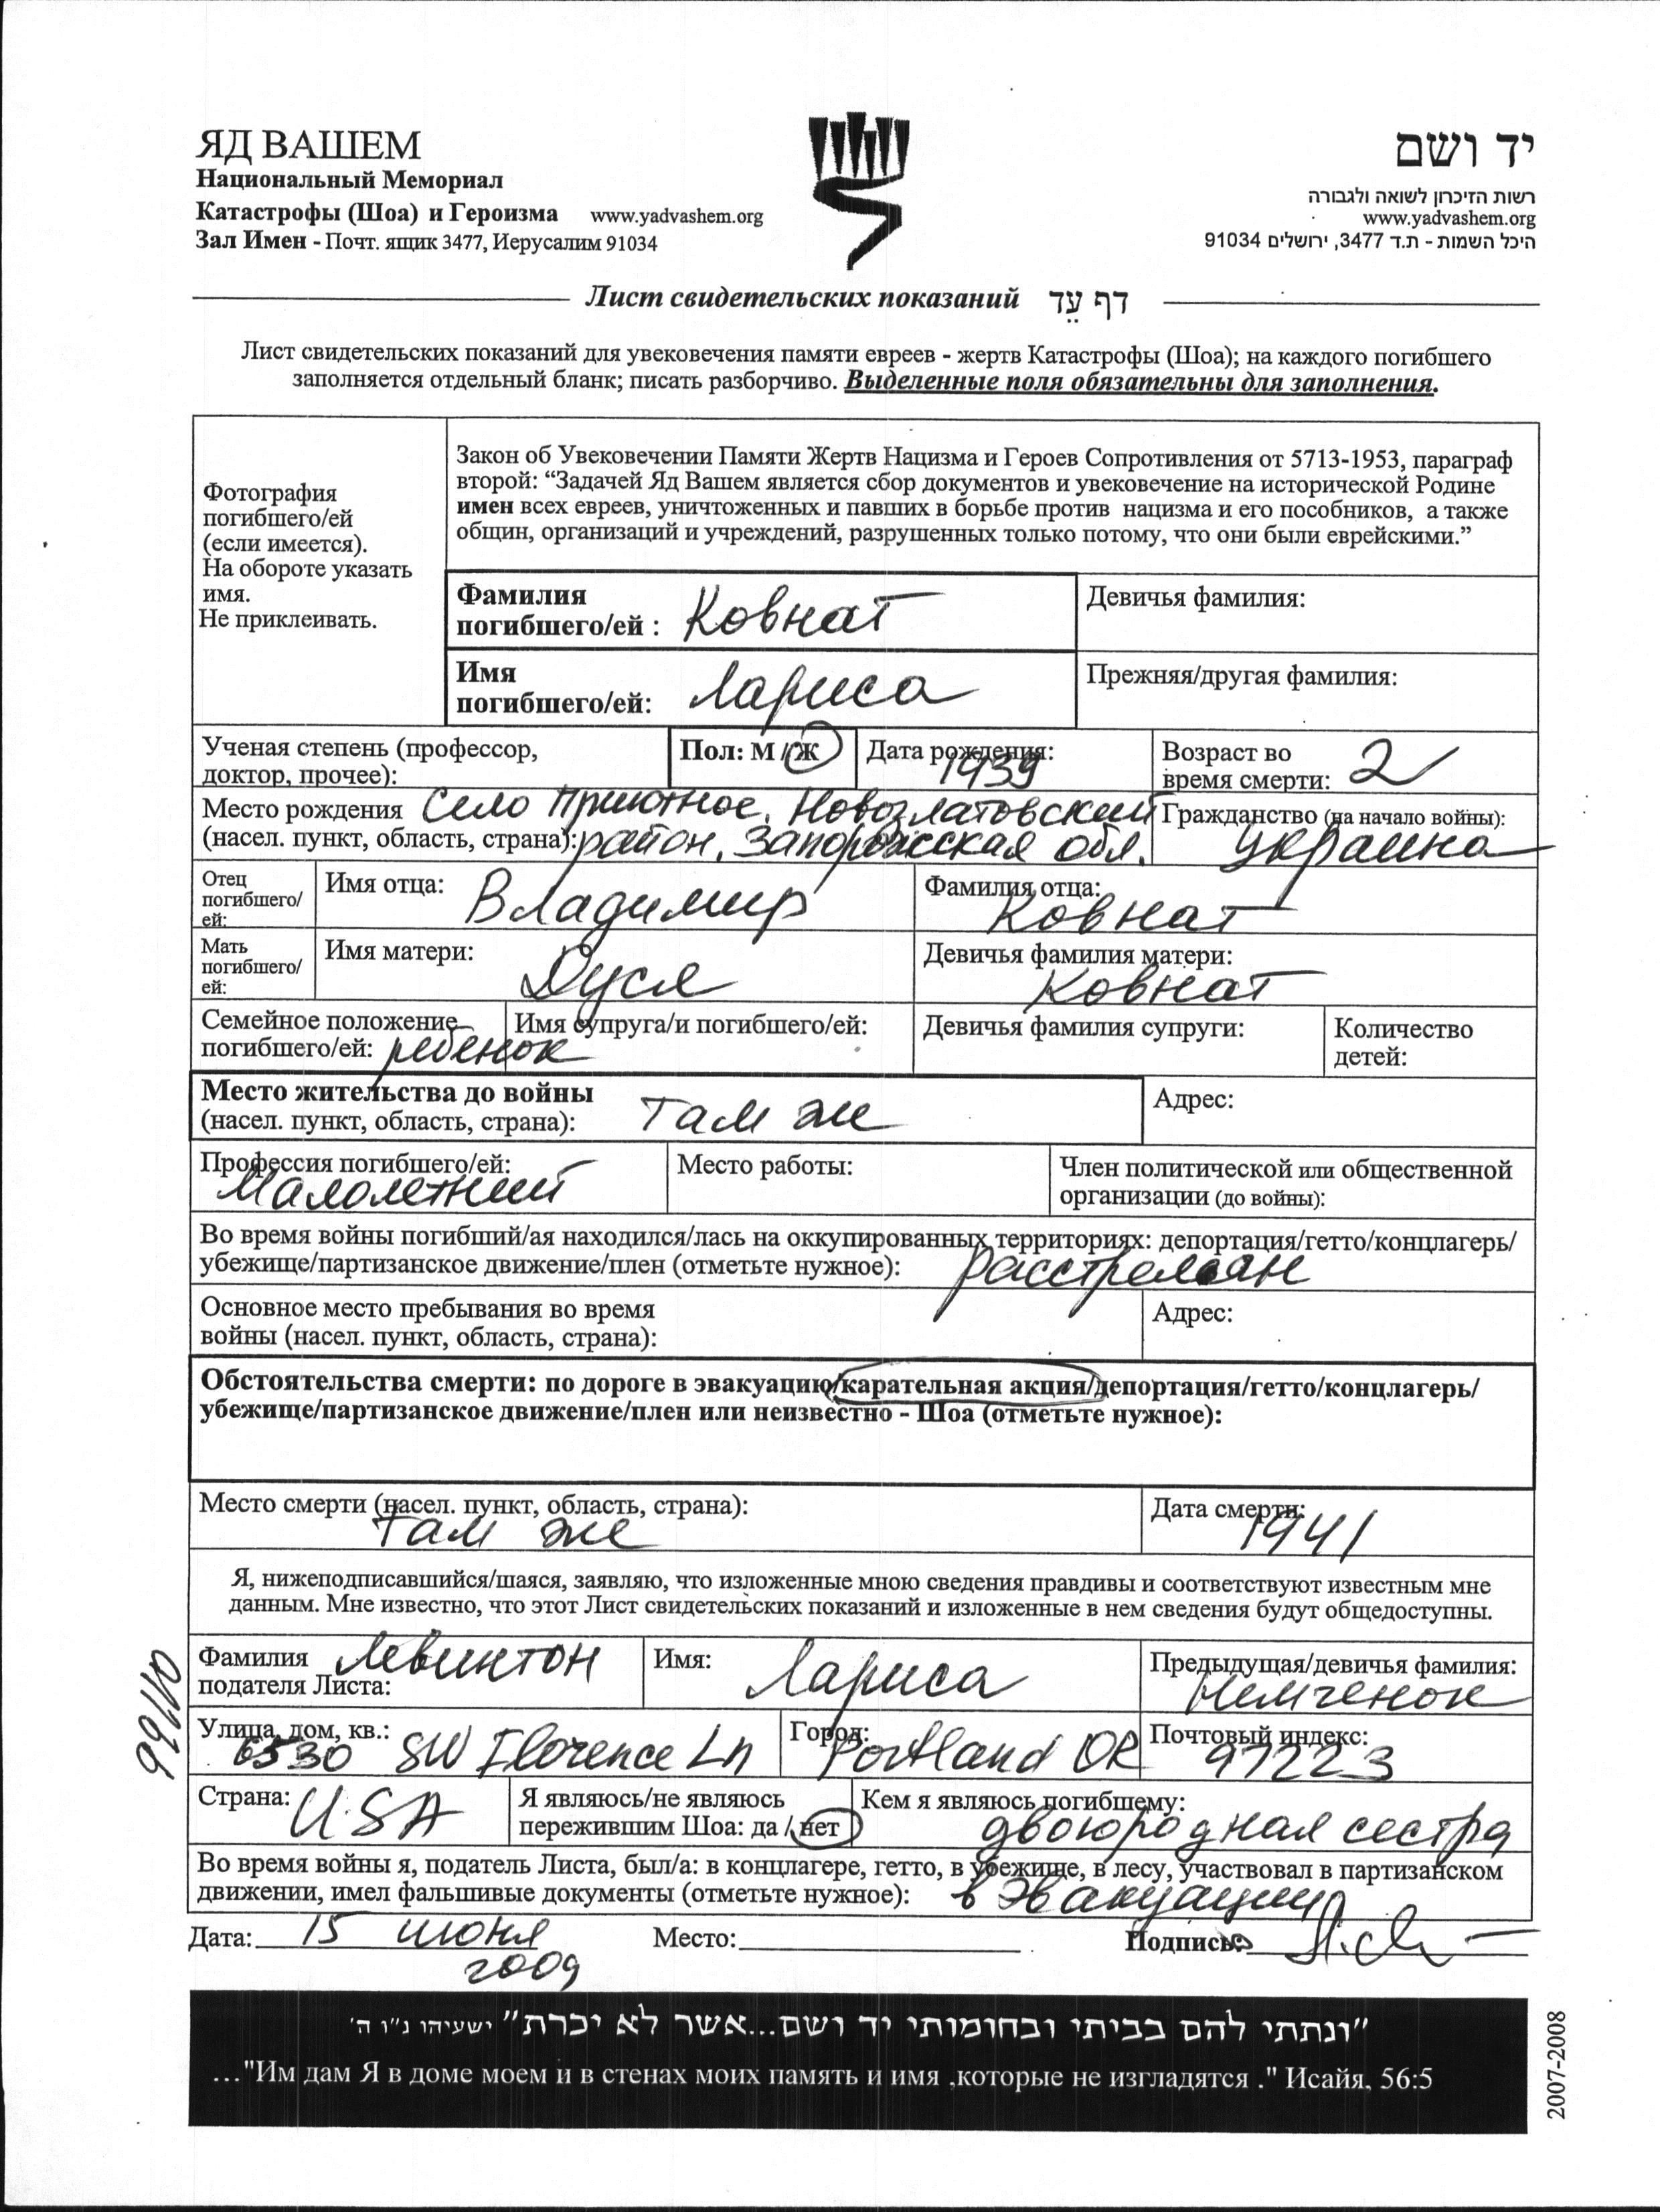 ЯД ВАШЕМ
Национальный Мемориал
Катастрофы (Шоа) и Героизма www.yadvashem.org
Зал Имен - Почт. ящик 3477, Иерусалим 91034
יד ושם
רשות הזיכרון לשואה ולגבורה
www.yadvashem.org
היכל השמות - ת.ד 3477, ירושלים 91034
Лист свидетельских показаний דף עֵד
Лист свидетельских показаний для увековечения памяти евреев - жертв Катастрофы (Шоа); на каждого погибшего
заполняется отдельный бланк; писать разборчиво. Выделенные поля обязательны для заполнения.
Фотография
погибшего/ей
(если имеется).
На обороте указать
имя.
Не приклеивать.
Закон об Увековечении Памяти Жертв Нацизма и Героев Сопротивления от 5713-1953, параграф
второй: “Задачей Яд Вашем является сбор документов и увековечение на исторической Родине
имен всех евреев, уничтоженных и павших в борьбе против нацизма и его пособников, а также
общин, организаций и учреждений, разрушенных только потому, что они были еврейскими.”
Фамилия
погибшего/ей : Ковнат
Девичья фамилия:
Имя
погибшего/ей: Лариса
Прежняя/другая фамилия:
Ученая степень (профессор,
доктор, прочее):
Пол: М / Ж
Дата рождения:
1939
Возраст во
время смерти: 2
Место рождения Село Приютное, Новозлатовский
(насел. пункт, область, страна): район, Запорожская обл.
Гражданство (на начало войны):
Украина
Отец
погибшего/
ей:
Имя отца: Владимир
Фамилия отца:
Ковнат
Мать
погибшего/
ей:
Имя матери: Дуся
Девичья фамилия матери:
Ковнат
Семейное положение
погибшего/ей: ребенок
Имя супруга/и погибшего/ей:
Девичья фамилия супруги:
Количество
детей:
Место жительства до войны
(насел. пункт, область, страна): там же
Адрес:
Профессия погибшего/ей:
Малолетний
Место работы:
Член политической или общественной
организации (до войны):
Во время войны погибший/ая находился/лась на оккупированных территориях: депортация/гетто/концлагерь/
убежище/партизанское движение/плен (отметьте нужное): расстрелян
Основное место пребывания во время
войны (насел. пункт, область, страна):
Адрес:
Обстоятельства смерти: по дороге в эвакуацию/карательная акция/депортация/гетто/концлагерь/
убежище/партизанское движение/плен или неизвестно - Шоа (отметьте нужное):
Место смерти (насел. пункт, область, страна):
там же
Дата смерти:
1941
Я, нижеподписавшийся/шаяся, заявляю, что изложенные мною сведения правдивы и соответствуют известным мне
данным. Мне известно, что этот Лист свидетельских показаний и изложенные в нем сведения будут общедоступны.
Фамилия Левинтон
подателя Листа:
Имя: Лариса
Предыдущая/девичья фамилия:
Немченок
Улица, дом, кв.:
6530 SW Florence Ln
Город:
Portland OR
Почтовый индекс:
97223
Страна: USA
Я являюсь/не являюсь
пережившим Шоа: да / нет
Кем я являюсь погибшему:
двоюродная сестра
Во время войны я, податель Листа, был/а: в концлагере, гетто, в убежище, в лесу, участвовал в партизанском
движении, имел фальшивые документы (отметьте нужное): в эвакуации
Дата: 15 июня
2009
Место:
Подпись:
"ונתתי להם בביתי ובחומותי יד ושם...אשר לא יכרת" ישעיהו נ"ו ה'
..."Им дам Я в доме моем и в стенах моих память и имя ,которые не изгладятся ." Исайя, 56:5
2007-2008